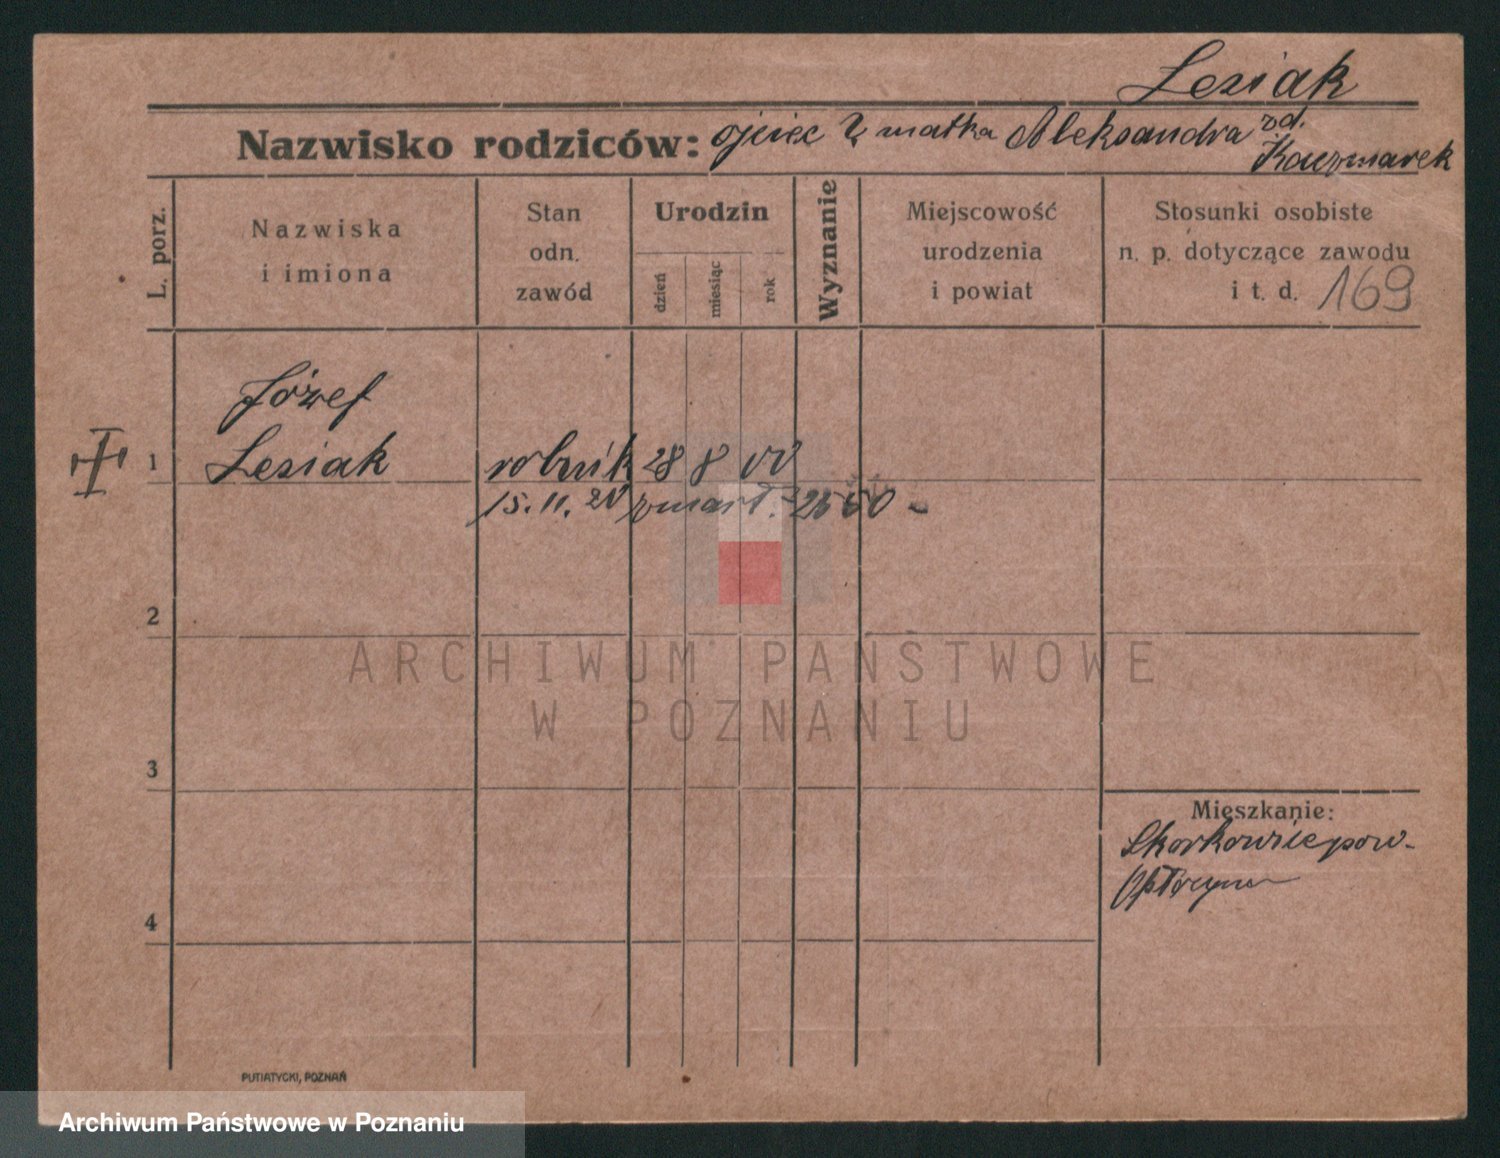 Lesiak
Nazwisko rodziców: ojciec ? matka Aleksandra zd.
Kaczmarek
L. porz.
Nazwiska
i imiona
Stan
odn.
zawód
Urodzin
dzień
miesiąc
rok
Wyznanie
Miejscowość
urodzenia
i powiat
Stosunki osobiste
n. p. dotyczące zawodu
i t. d. 169
Józef
1 Lesiak robnik 28 8 00
15. 11. 20 zmarł.
2
3
4
Mieszkanie:
pow.
PUTIATYCKI, POZNAŃ
ARCHIWUM PAŃSTWOWE
W POZNANIU
Archiwum Państwowe w Poznaniu